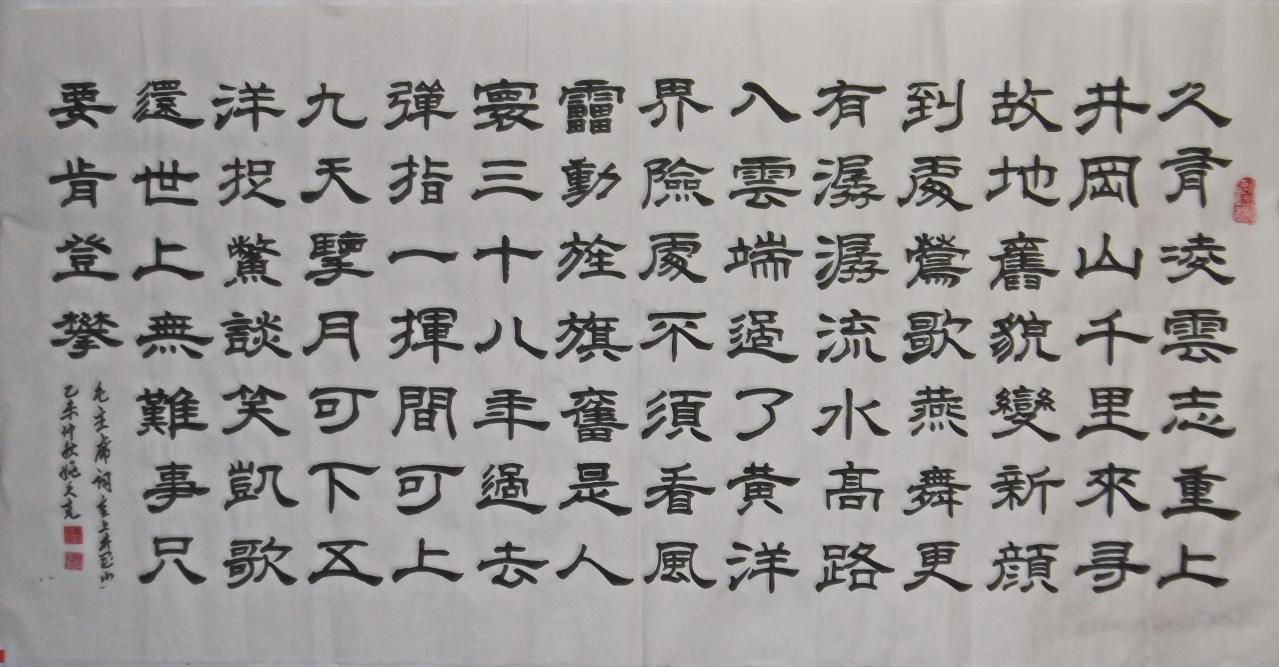 久有凌雲志重上
井岡山千里來尋
故地舊貌變新顔
到處鶯歌燕舞更
有潺潺流水高路
入雲端過了黃洋
界險處不須看風
靁動旌旗奮是人
寰三十八年過去
彈指一揮間可上
九天擥月可下五
洋捉鱉談笑凱歌
還世上無難事只
要肯登攀
毛主席詞重上井岡山
乙未仲秋姚文